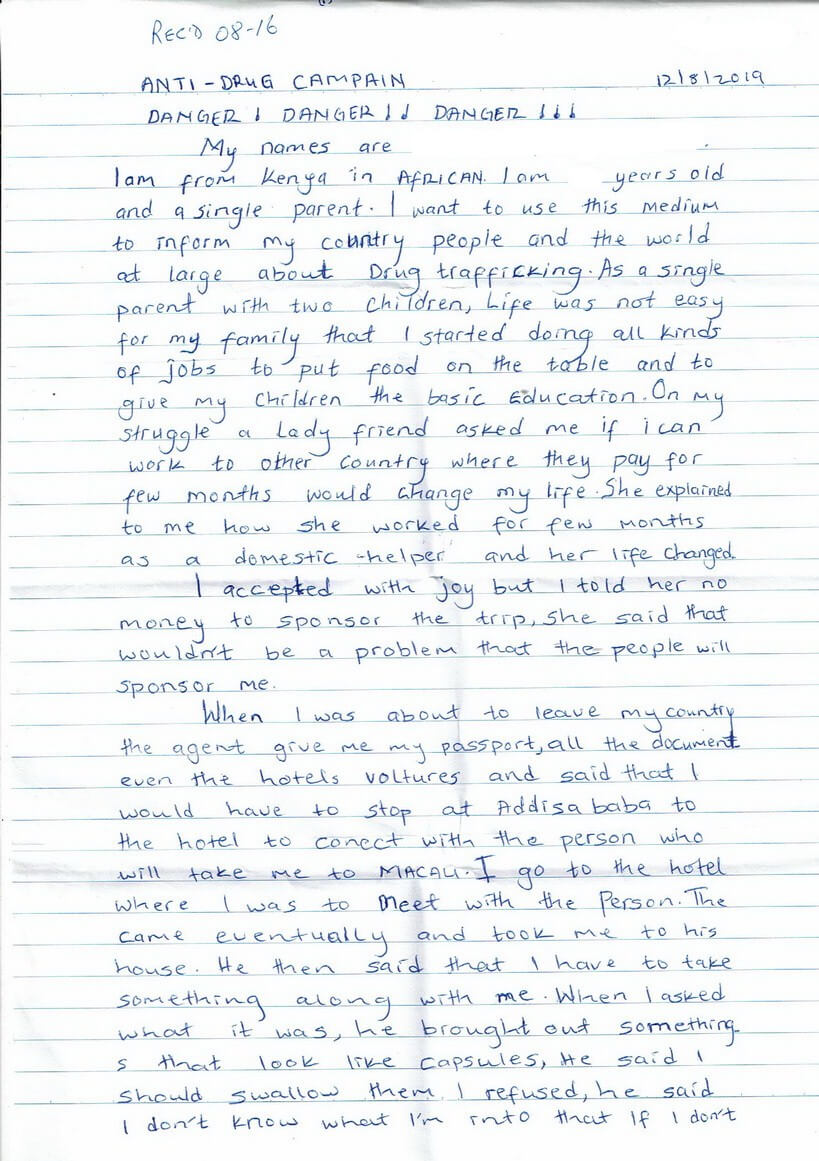 REC'D 08-16
ANTI-DRUG CAMPAIN 12/8/2019
DANGER! DANGER!! DANGER!!!
My names are
I am from Kenya in AFRICAN. I am years old
and a single parent. I want to use this medium
to inform my country people and the world
at large about Drug trafficking. As a single
parent with two children, Life was not easy
for my family that I started doing all kinds
of jobs to put food on the table and to
give my children the basic Education. On my
struggle a lady friend asked me if i can
work to other country where they pay for
few months would change my life. She explained
to me how she worked for few months
as a domestic-helper and her life changed.
I accepted with joy but I told her no
money to sponsor the trip, she said that
wouldn't be a problem that the people will
sponsor me.
When I was about to leave my country
the agent give me my passport, all the document
even the hotels voltures and said that I
would have to stop at Addisababa to
the hotel to conect with the person who
will take me to MACAU. I go to the hotel
where I was to meet with the Person. The
came eventually and took me to his
house. He then said that I have to take
something along with me. When I asked
what it was, he brought out something
s that look like capsules, He said I
should swallow them. I refused, he said
I don't know what I'm into that If I don't